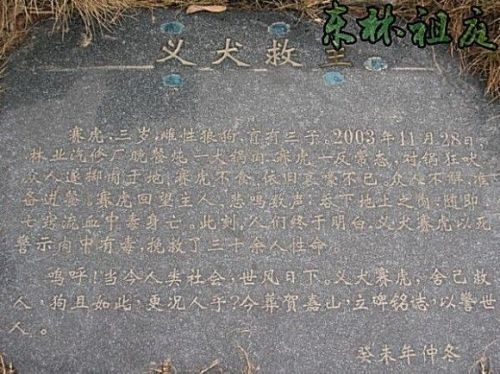 东林祖庭
义犬救主
赛虎，三岁，雌性狼狗，育有三子。2003年11月28日，
林业汽修厂晚餐炖一大锅肉，赛虎一反常态，对锅狂吠
众人遂掷肉于地，赛虎不食，依旧哀嚎不已。众人不解，准
备进食。赛虎回望主人，悲鸣数声，吞下地上之肉，随即
七窍流血中毒身亡。此刻，人们终于明白，义犬赛虎以死
警示肉中有毒，挽救了三十余人性命。
呜呼！当今人类社会，世风日下。义犬赛虎，舍己救
人，狗且如此，更况人乎？今葬贺嘉山，立碑铭志，以警世
人。
癸未年仲冬